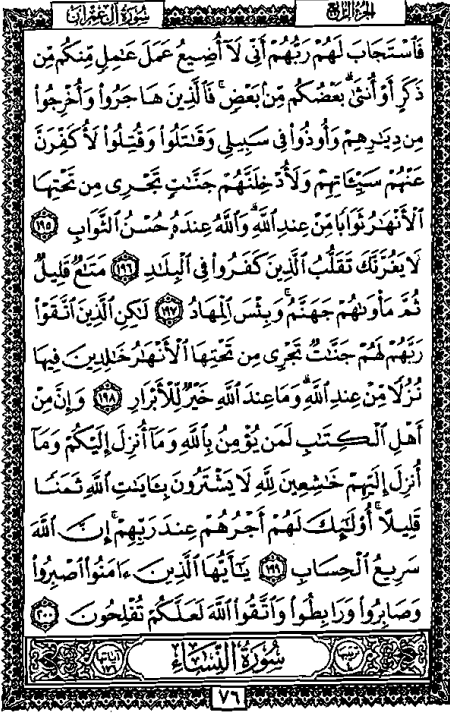 الجزء الرابع
سورة آل عمران
فَاسْتَجَابَ لَهُمْ رَبُّهُمْ أَنِّي لَا أُضِيعُ عَمَلَ عَامِلٍ مِّنكُم مِّن
ذَكَرٍ أَوْ أُنثَىٰ بَعْضُكُم مِّنْ بَعْضٍ فَالَّذِينَ هَاجَرُوا وَأُخْرِجُوا
مِن دِيَارِهِمْ وَأُوذُوا فِي سَبِيلِي وَقَاتَلُوا وَقُتِلُوا لَأُكَفِّرَنَّ
عَنْهُمْ سَيِّئَاتِهِمْ وَلَأُدْخِلَنَّهُمْ جَنَّاتٍ تَجْرِي مِن تَحْتِهَا
الْأَنْهَارُ ثَوَابًا مِّنْ عِندِ اللَّهِ وَاللَّهُ عِندَهُ حُسْنُ الثَّوَابِ ١٩٥
لَا يَغُرَّنَّكَ تَقَلُّبُ الَّذِينَ كَفَرُوا فِي الْبِلَادِ ١٩٦ مَتَاعٌ قَلِيلٌ
ثُمَّ مَأْوَاهُمْ جَهَنَّمُ وَبِئْسَ الْمِهَادُ ١٩٧ لَٰكِنِ الَّذِينَ اتَّقَوْا
رَبَّهُمْ لَهُمْ جَنَّاتٌ تَجْرِي مِن تَحْتِهَا الْأَنْهَارُ خَالِدِينَ فِيهَا
نُزُلًا مِّنْ عِندِ اللَّهِ وَمَا عِندَ اللَّهِ خَيْرٌ لِّلْأَبْرَارِ ١٩٨ وَإِنَّ مِنْ
أَهْلِ الْكِتَابِ لَمَن يُؤْمِنُ بِاللَّهِ وَمَا أُنزِلَ إِلَيْكُمْ وَمَا
أُنزِلَ إِلَيْهِمْ خَاشِعِينَ لِلَّهِ لَا يَشْتَرُونَ بِآيَاتِ اللَّهِ ثَمَنًا
قَلِيلًا أُولَٰئِكَ لَهُمْ أَجْرُهُمْ عِندَ رَبِّهِمْ إِنَّ اللَّهَ
سَرِيعُ الْحِسَابِ ١٩٩ يَا أَيُّهَا الَّذِينَ آمَنُوا اصْبِرُوا
وَصَابِرُوا وَرَابِطُوا وَاتَّقُوا اللَّهَ لَعَلَّكُمْ تُفْلِحُونَ ٢٠٠
سُورَةُ النِّسَاءِ
٧٦